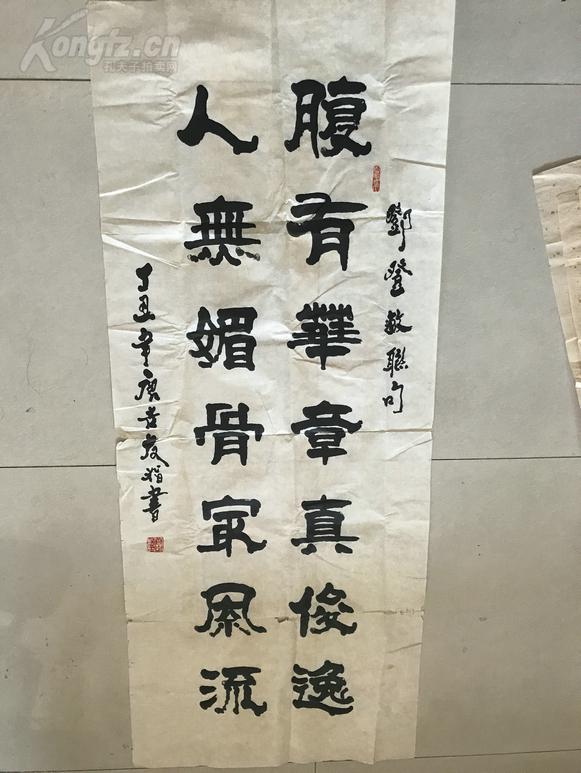 Kongfz.cn
孔夫子拍卖网
鄧登敏聯句
腹有華章真俊逸
人無媚骨冣風流
丁丑年唐書